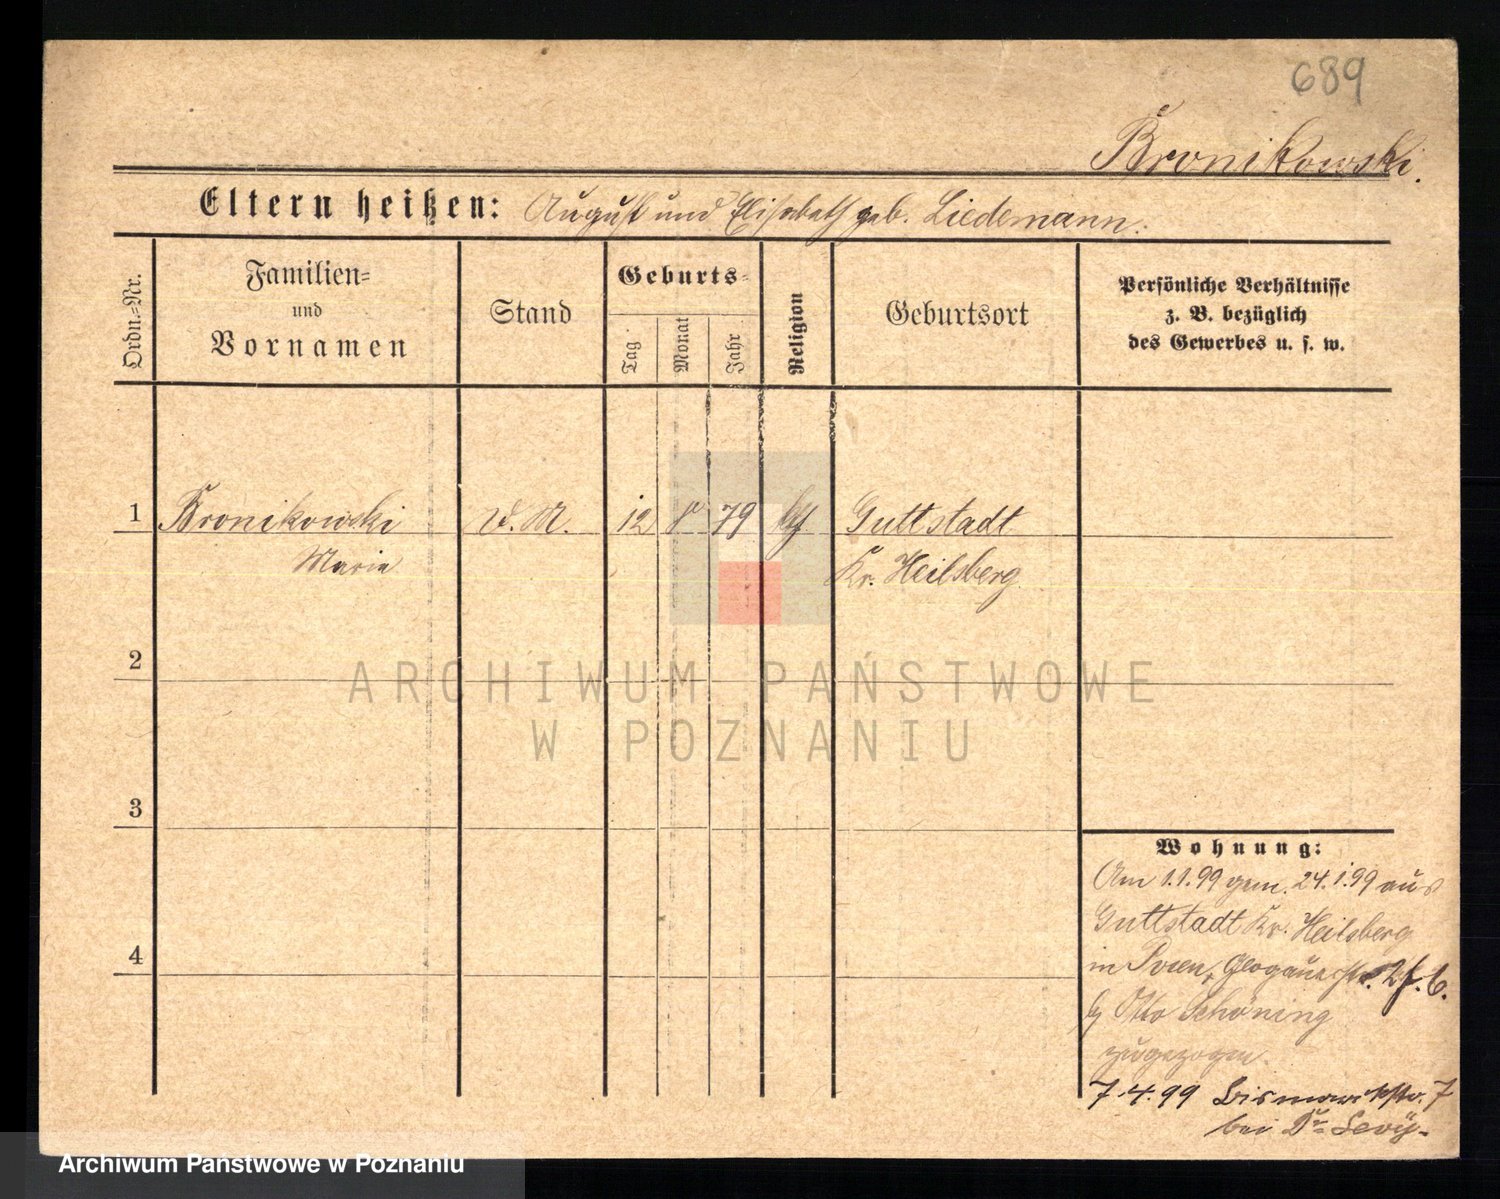 689
Bronikowski.
Eltern heißen: August und Elisabeth geb. Liedemann.
Ordn.=Nr.
Familien=
und
Vornamen
Stand
Geburts=
Tag
Monat
Jahr
Religion
Geburtsort
Persönliche Verhältnisse
z. B. bezüglich
des Gewerbes u. s. w.
1 Bronikowski D. M. 12 8 79 kth Guttstadt
Marie Kr. Heilsberg
2
ARCHIWUM PAŃSTWOWE
W POZNANIU
3
Wohnung:
Am 1.1.99 gem. 24.1.99 aus
Guttstadt Kr. Heilsberg
4
in Posen, Glogauerstr.
Otto Schöning
zugezogen.
7.4.99 Bismarckstr. 7
bei Dr. Levy.
Archiwum Państwowe w Poznaniu